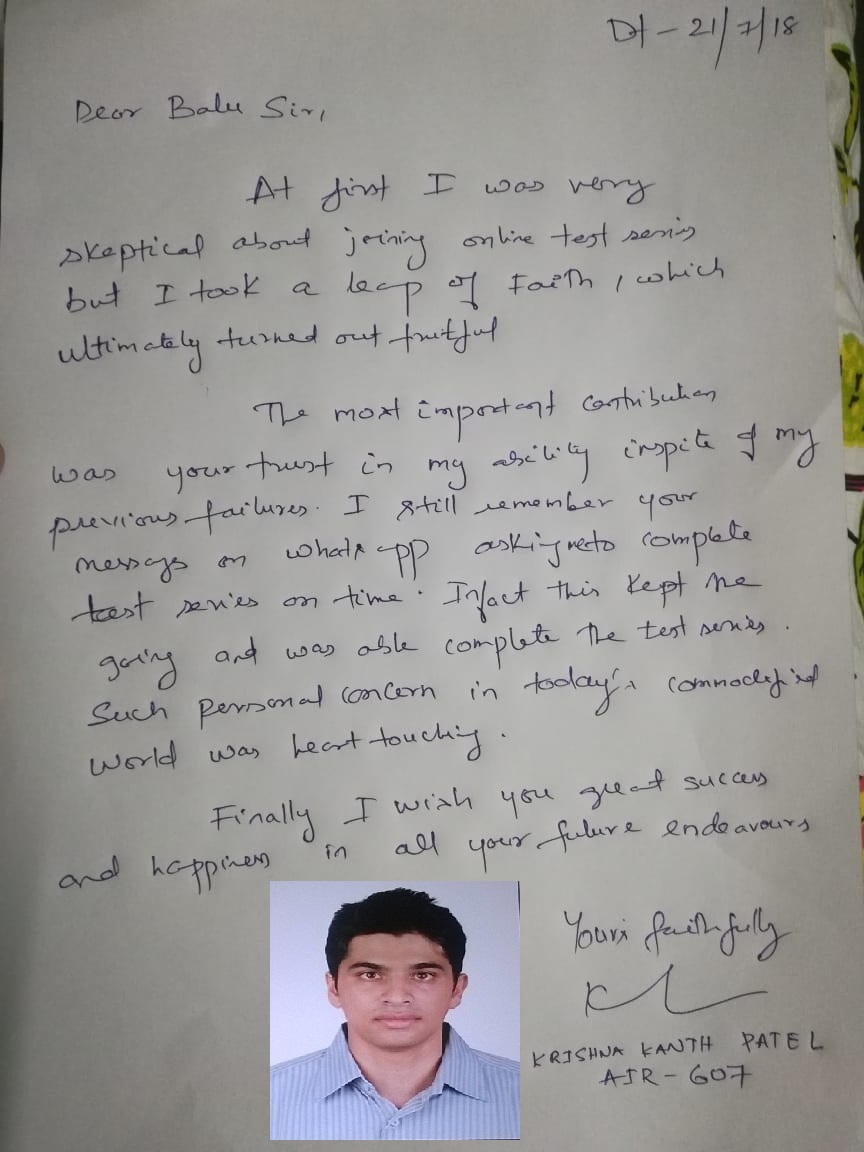 Dt - 21/7/18
Dear Balu Sir,
At first I was very
skeptical about joining online test series
but I took a leap of Faith, which
ultimately turned out fruitful
The most important contribution
was your trust in my ability inspite of my
previous failures. I still remember your
message on whatsapp asking me to complete
test series on time. Infact this kept me
going and was able complete the test series.
Such personal concern in today's commodified
world was heart touching.
Finally I wish you great success
and happiness in all your future endeavours
Yours faithfully
KRISHNA KANTH PATEL
AIR - 607